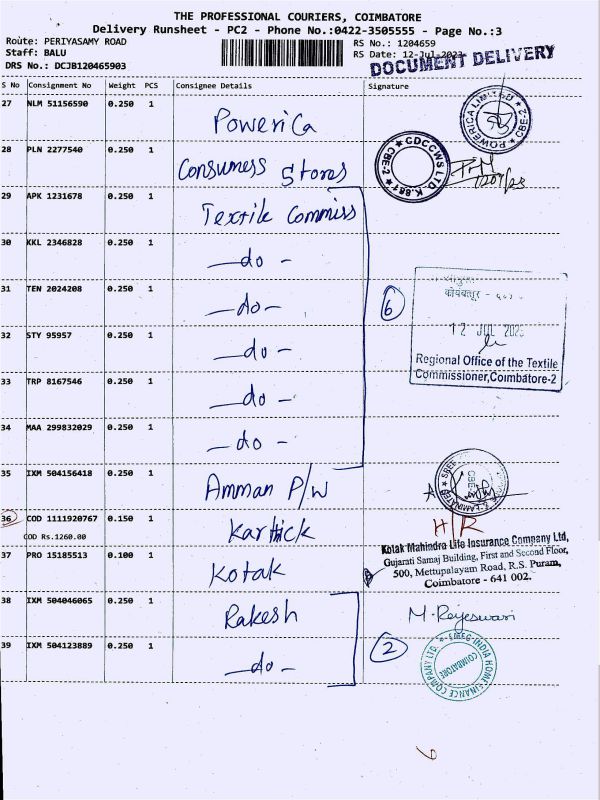 THE PROFESSIONAL COURIERS, COIMBATORE
Delivery Runsheet - PC2 - Phone No.:0422-3505555 - Page No.:3
Route: PERIYASAMY ROAD
RS No.: 1204659
Staff: BALU
RS Date: 12-Jul-2023
DRS No.: DCJB120465903
DOCUMENT DELIVERY
S No Consignment No Weight PCS Consignee Details Signature
27 NLM 51156590 0.250 1 Powerica
POWERICA LIMITED CBE-2
28 PLN 2277540 0.250 1 Consumers Stores
CDCCWS LTD K.881 CBE-2
29 APK 1231678 0.250 1 Textile Commiss
30 KKL 2346828 0.250 1 —do—
31 TEN 2024208 0.250 1 —do—
6
कोयंबत्तूर -
12 JUL 2023
32 STY 95957 0.250 1 —do—
Regional Office of the Textile
Commissioner,Coimbatore-2
33 TRP 8167546 0.250 1 —do—
34 MAA 299832029 0.250 1 —do—
35 IXM 504156418 0.250 1 Amman P/W
36 COD 1111920767 0.150 1 Karthick H/R
COD Rs.1260.00
37 PRO 15185513 0.100 1 Kotak
Kotak Mahindra Life Insurance Company Ltd,
Gujarati Samaj Building, First and Second Floor,
500, Mettupalayam Road, R.S. Puram,
Coimbatore - 641 002.
38 IXM 504046065 0.250 1 Rakesh M. Rajeswari
39 IXM 504123889 0.250 1 —do— 2
SMFG INDIA HOME FINANCE COMPANY LTD.
COIMBATORE